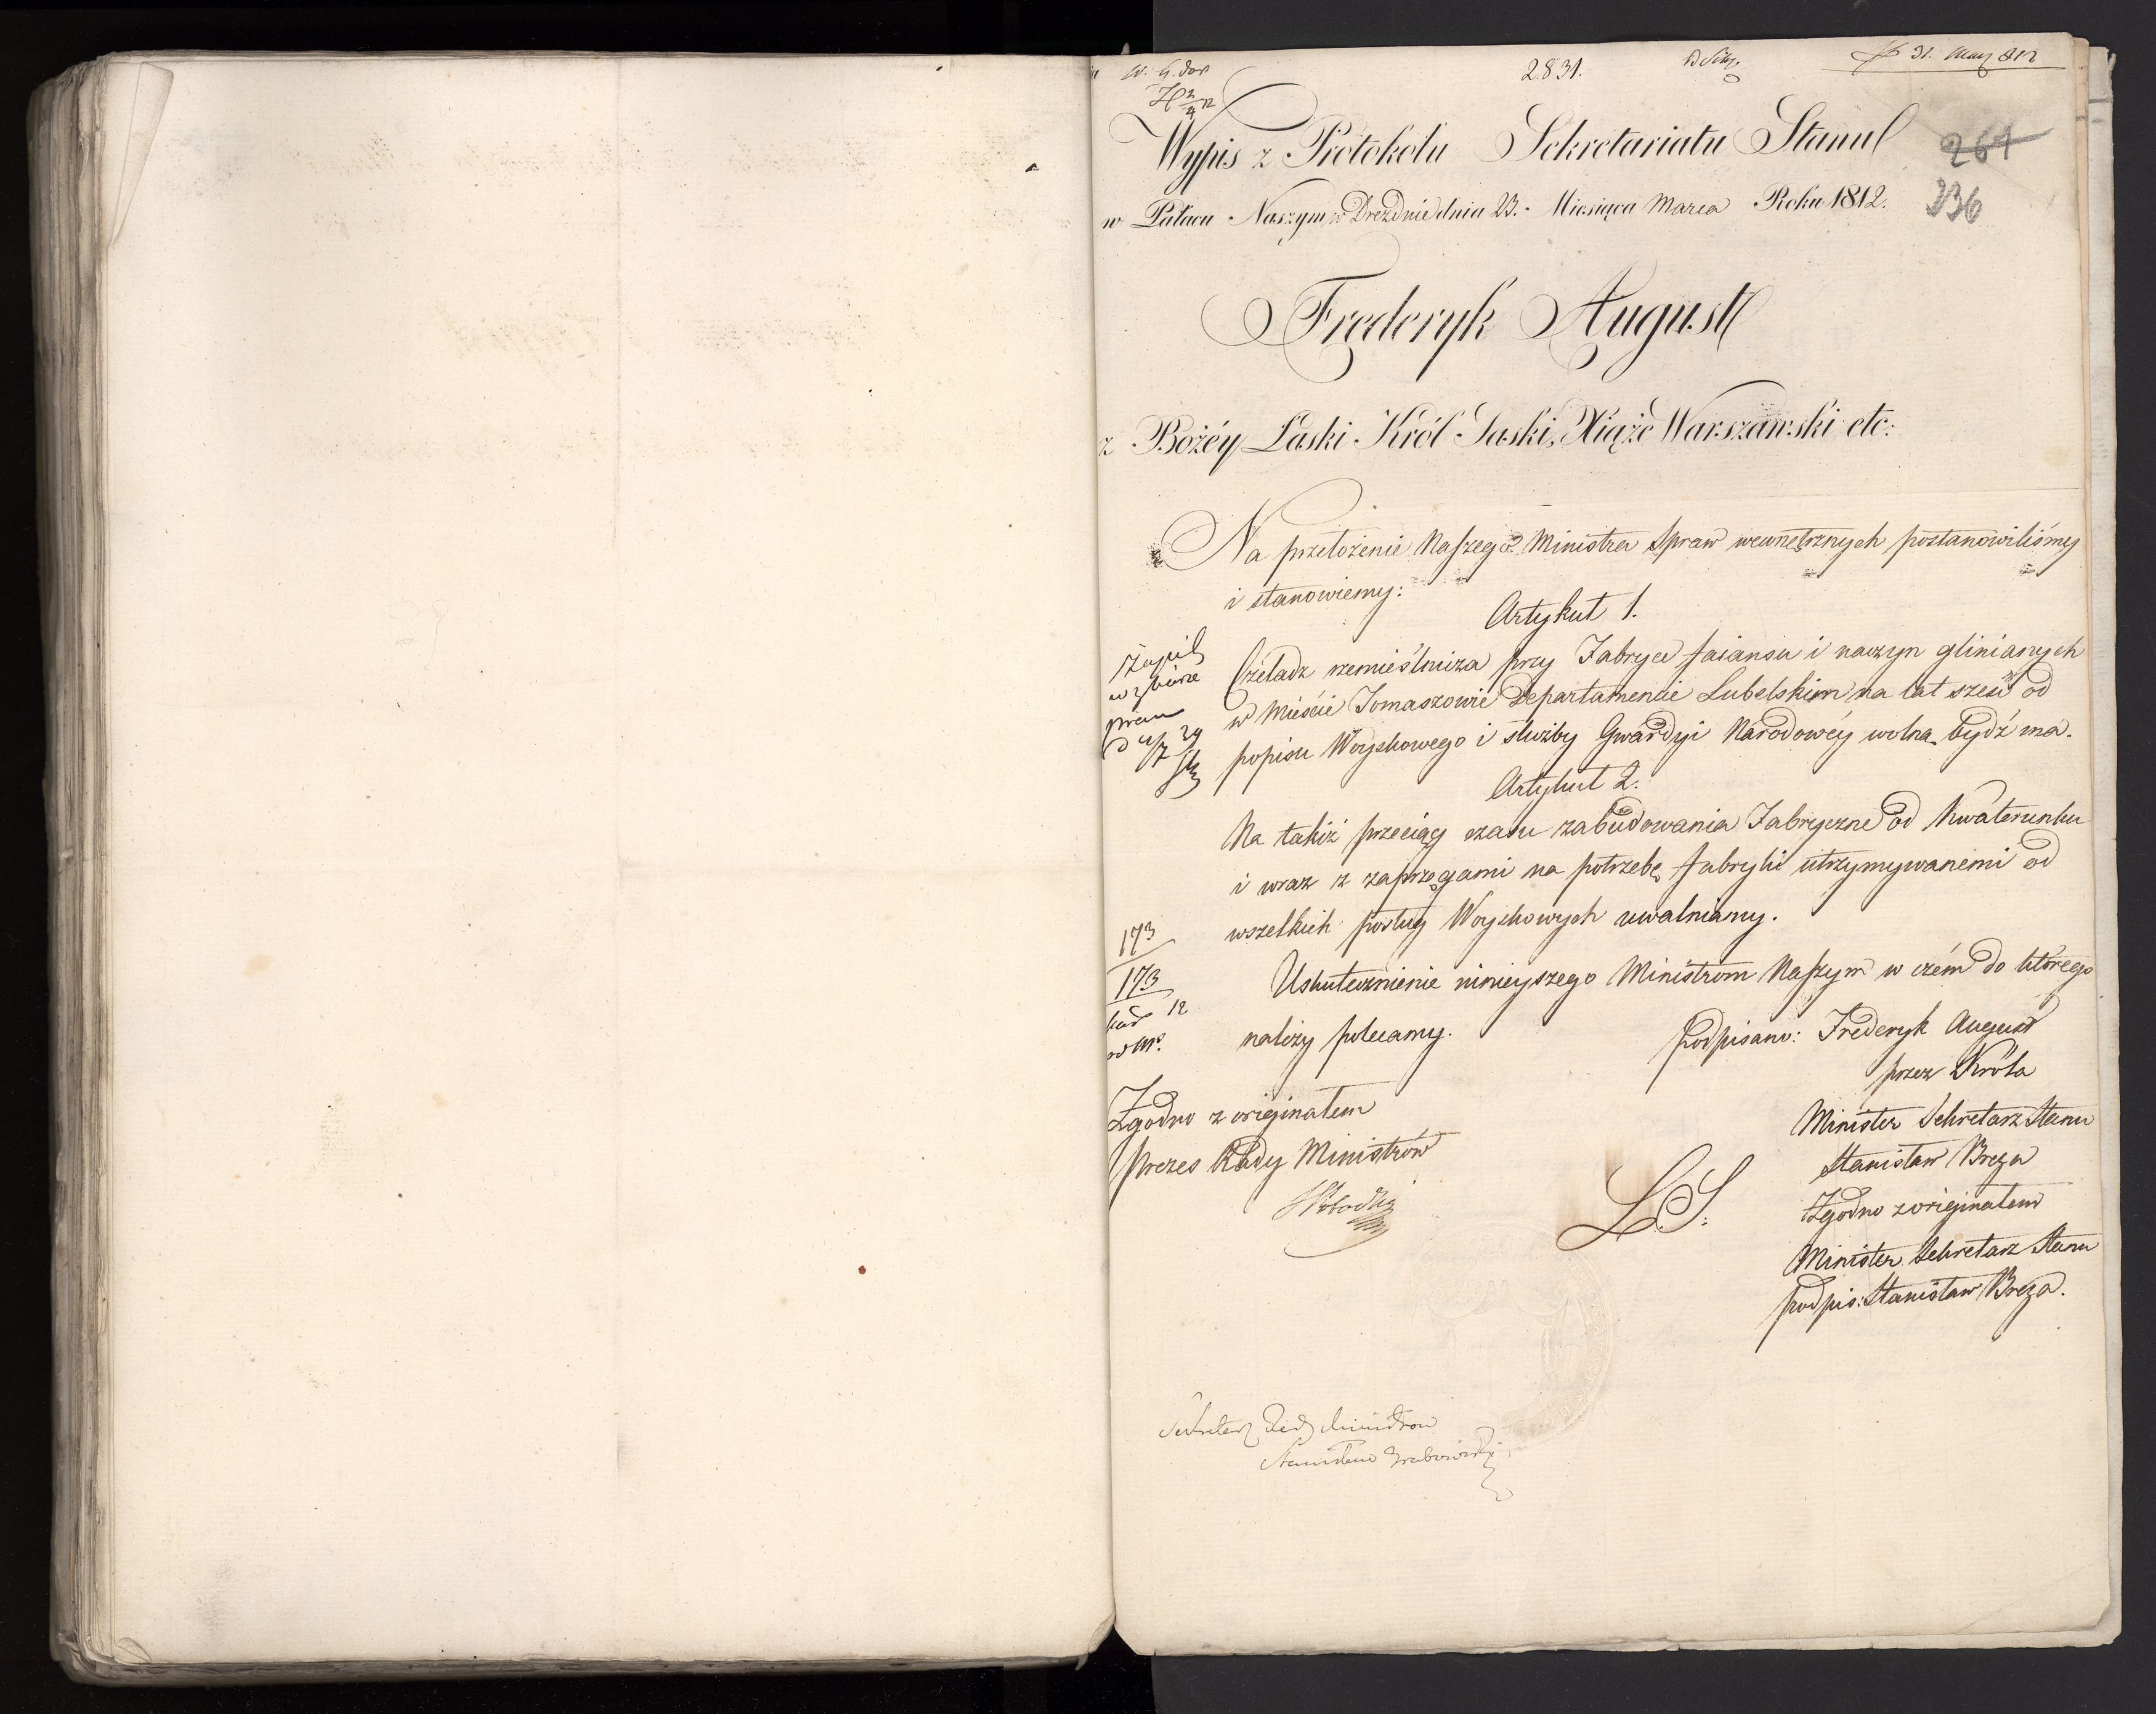 2831.
31. May 812
Wypis z Protokołu Sekretariatu Stanu
261
w Pałacu Naszym w Dreznie dnia 23. Miesiąca Marca Roku 1812.
236
Frederyk August
z Bożéy Łaski Król Saski, Xiąże Warszawski etc:
Na przełożenie Naszego Ministra Spraw wewnętrznych postanowiliśmy
i stanowiemy:
Artykuł 1.
Czeladz rzemieślnicza przy Fabryce fasiansu i naczyn glinianych
w Mieście Tomaszowie Departamencie Lubelskim na lat sześć od
popisu Woyskowego i służby Gwardyi Narodowéy wolną bydź ma.
Artykuł 2.
Na takiż przeciąg czasu zabudowania Fabryczne od kwaterunku
i wraz z zaprzęgami na potrzebę fabryki utrzymywanemi od
wszelkich posług Woyskowych uwalniamy.
173
173
12
Uskutecznienie ninieyszego Ministrom Naszym w czém do którego
należy polecamy.
Podpisano: Frederyk August
przez Króla
Minister Sekretarz Stanu
Stanisław Breza
Zgodno z originałem
Prezes Rady Ministrów
L.S.
Zgodno z originałem
Minister Sekretarz Stanu
podpis: Stanisław Breza.
Sekretarz Rady Ministrow
Stanisław Grabowski